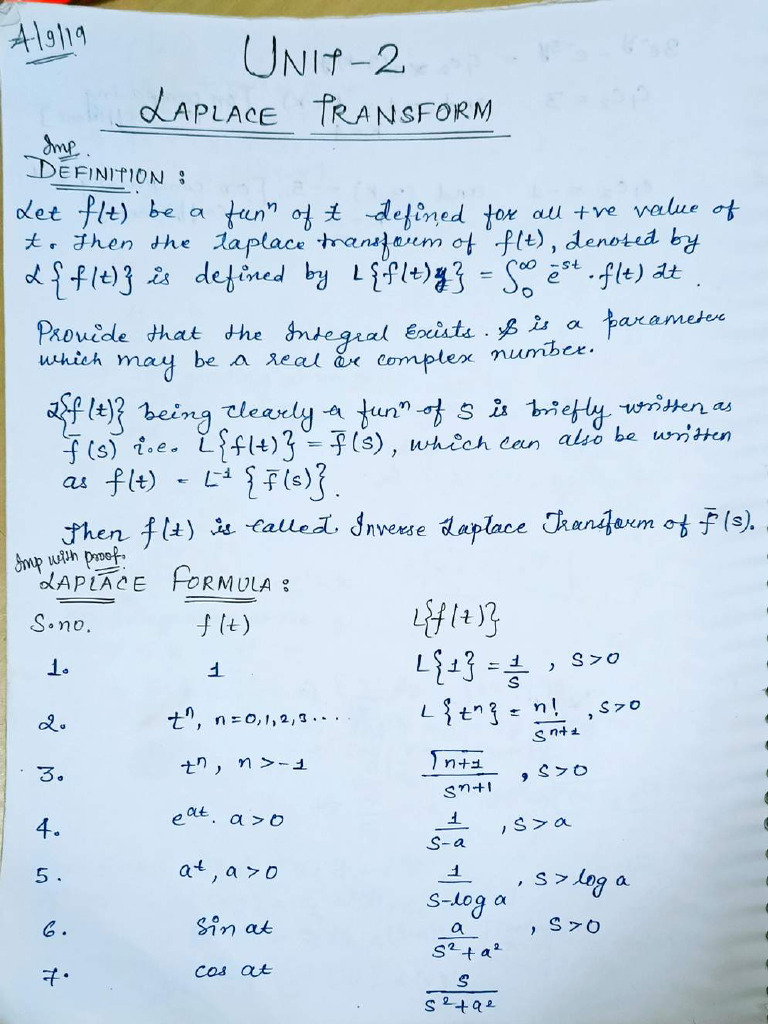 4/9/19
UNIT-2
LAPLACE TRANSFORM
Imp.
DEFINITION :
Let f(t) be a funⁿ of t defined for all +ve value of
t. Then the Laplace transform of f(t), denoted by
L{f(t)} is defined by L{f(t)} = ∫₀^∞ e^-st . f(t) dt
Provide that the Integral Exists. S is a parameter
which may be a real or complex number.
L{f(t)} being clearly a funⁿ of S is briefly written as
f̄(s) i.e. L{f(t)} = f̄(s), which can also be written
as f(t) = L⁻¹ {f̄(s)}.
Then f(t) is called Inverse Laplace Transform of f̄(s).
Imp with proof.
LAPLACE FORMULA :
S.no. f(t) L{f(t)}
1. 1 L{1} = 1/s , s>0
2. tⁿ, n=0,1,2,3.... L{tⁿ} = n!/sⁿ⁺¹ , s>0
3. tⁿ, n>-1 Γn+1/sⁿ⁺¹ , s>0
4. e^at. a>0 1/s-a , s>a
5. a^t, a>0 1/s-log a , s>log a
6. Sin at a/s²+a² , s>0
7. cos at s/s²+a²